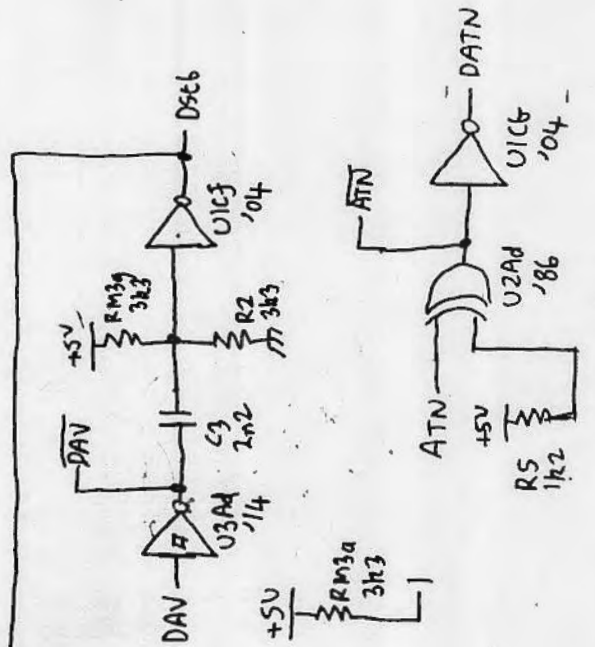 DAV
U3Ad
'14
D̅A̅V̅
C3
2n2
+5V
RM3g
3k3
R2
3k3
U1Cf
'04
Dstb
+5V
RM3a
3k3
1
ATN
+5V
R5
1k2
U2Ad
'86
A̅T̅N̅
U1Cb
'04
DATN